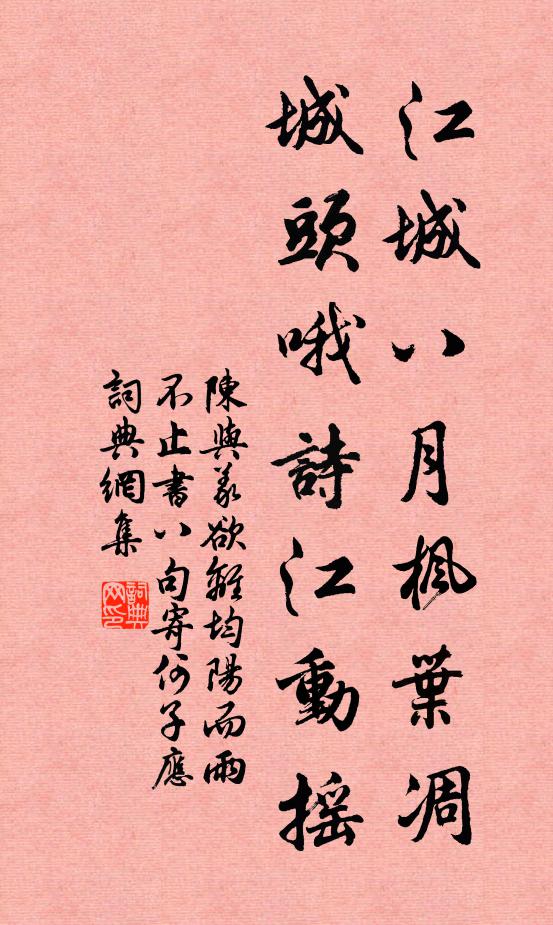 江城八月楓葉凋
城頭哦詩江動摇
陳與義欲離均陽而雨
不止書八句寄何子應
詞典網集
詞典
网印